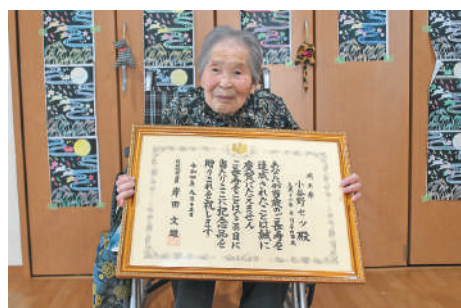 小谷野セツ殿
あなたが百歳のご長寿を
達成されたことは誠に
慶賀にたえません
ご長寿をことほぐ
当たりここに記念品を
贈りこれを祝します
令和四年九月十五日
内閣総理大臣 岸田文雄